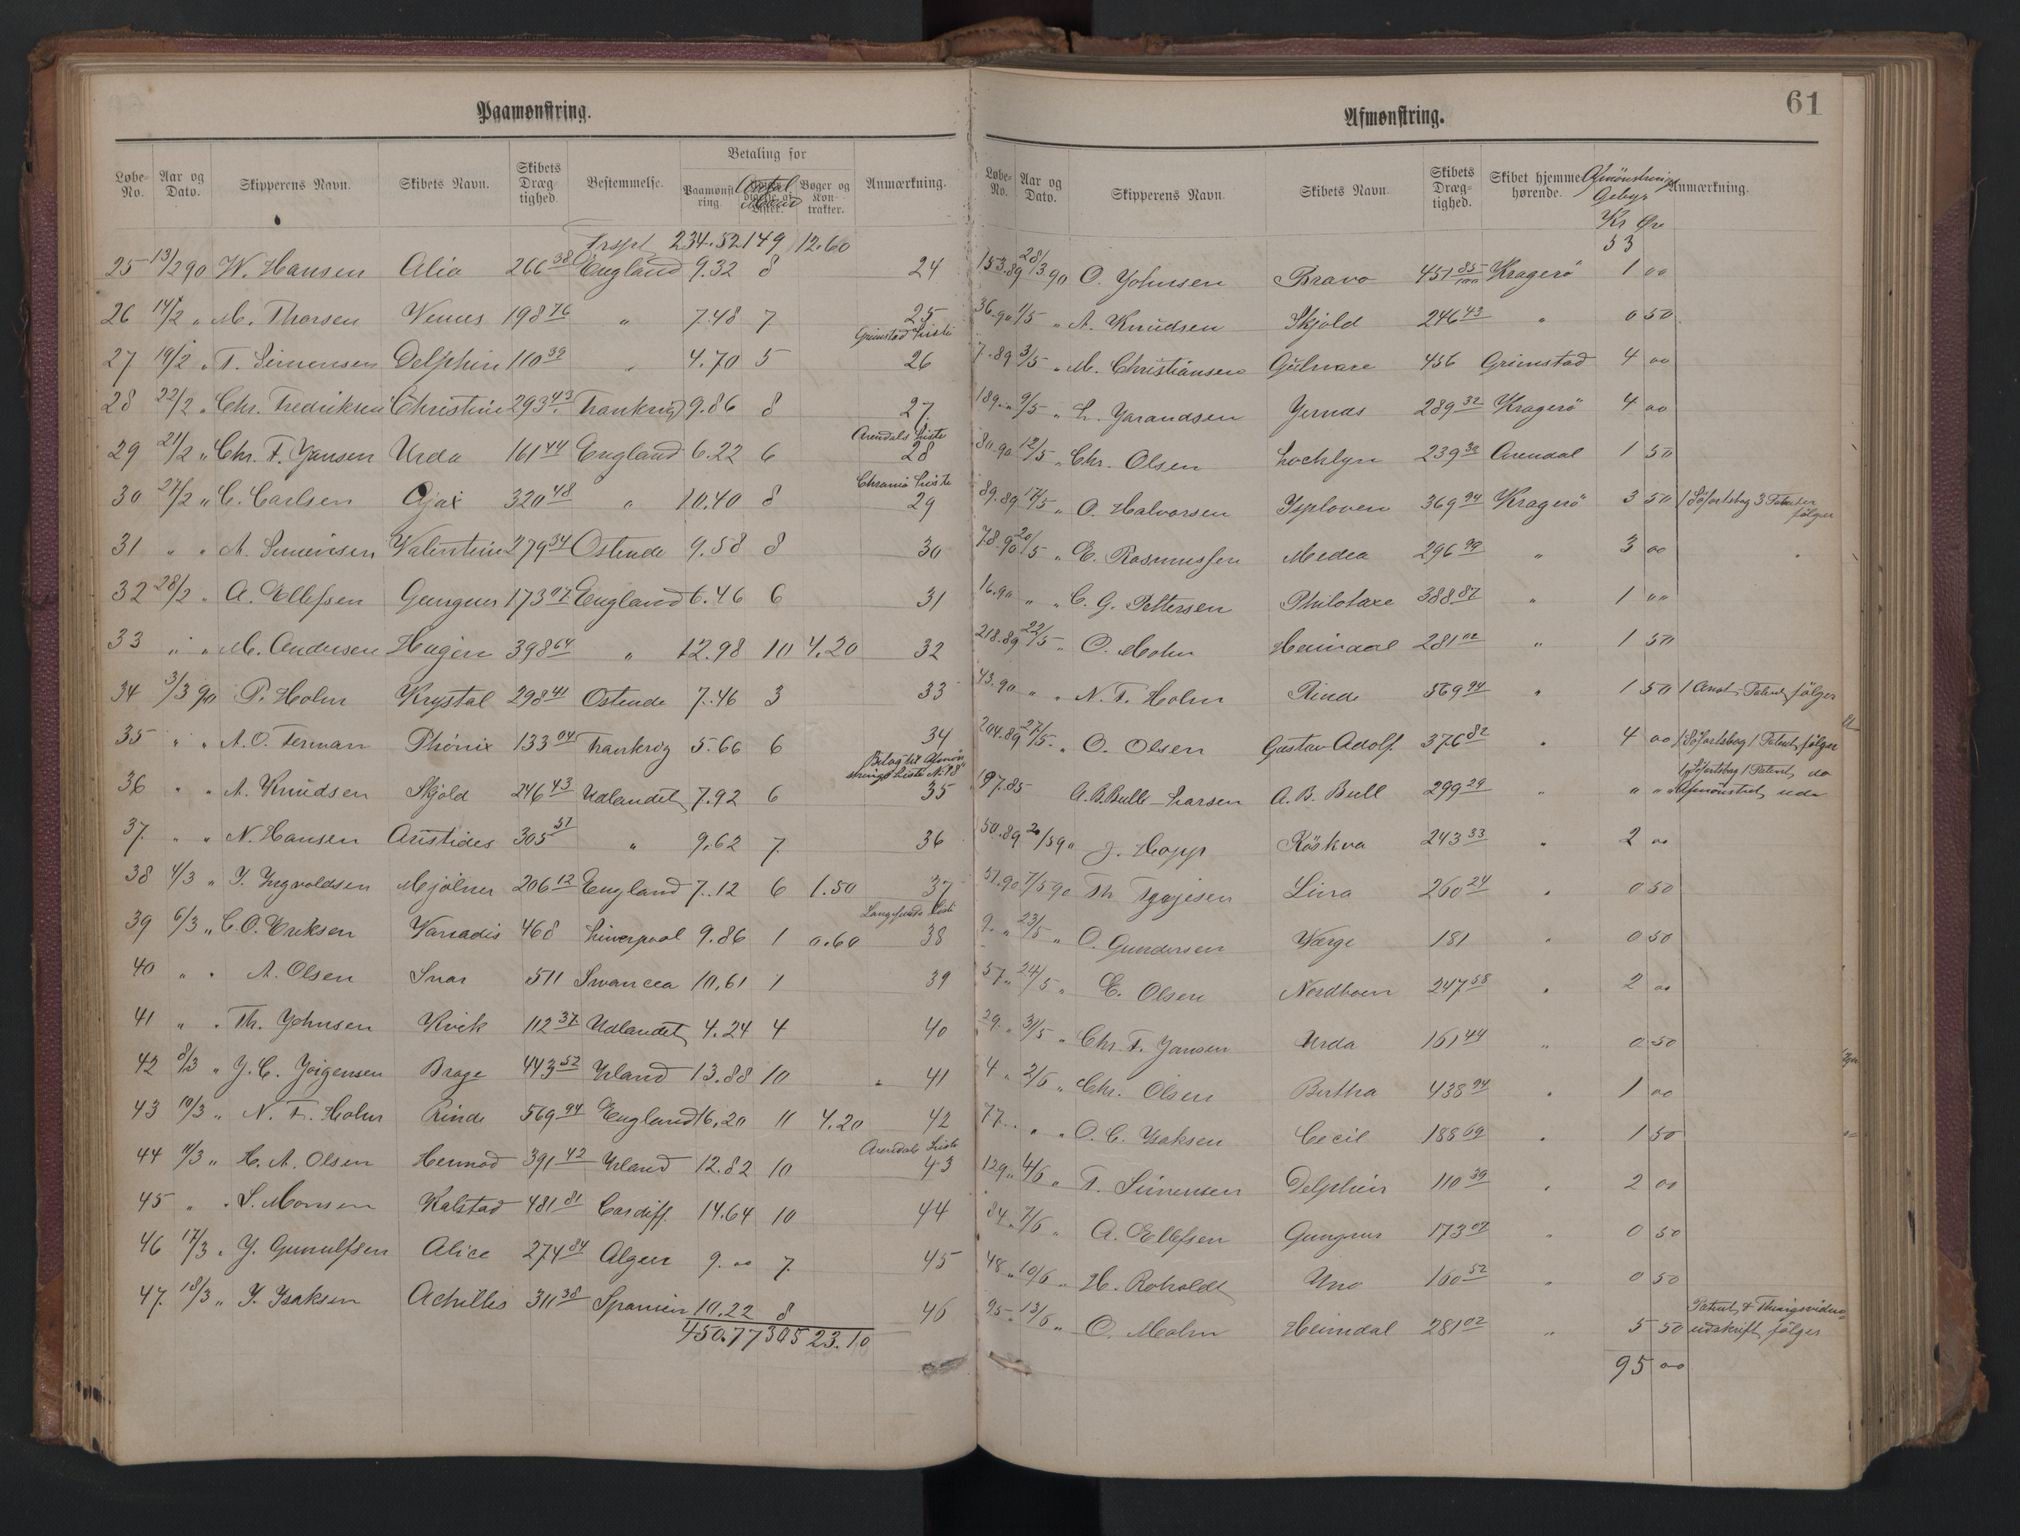 61
Paamønstring.
Løbe-No. Aar og Dato. Skipperens Navn. Skibets Navn. Skibets Dræg-tighed. Bestemmelse. Betaling for Paamønst-ring. Antal Mand Bøger og Kon-trakter. Anmærkning.
Trspt 234.52 149 12.60
25 13/2 90 W. Hansen Alia 266 38 England 9.32 8 24
26 14/2 " M. Thorsen Venus 198 76 " 7.48 7 25
Grimstad Liste
27 19/2 " T. Simonsen Delphin 110 39 " 4.70 5 26
28 22/2 " Chr. Fredriksen Christine 293 43 Frankrig 9.86 8 27
Arendals Liste
29 21/2 " Chr. F. Jansen Urda 161 44 England 6.22 6 28
Chrania Liste
30 27/2 " C. Carlsen Ajax 320 48 " 10.40 8 29
31 " " A. Simensen Valentine 279 34 Ostende 9.58 8 30
32 28/2 " A. Ellefsen Gungner 173 07 England 6.46 6 31
33 " " M. Andersen Hagin 398 64 " 12.98 10 4.20 32
34 3/3 90 P. Holm Krystal 298 41 Ostende 7.46 3 33
35 " " A. O. Terman Phönix 133 04 Frankrig 5.66 6 34
Bilag til Afmön-
strings Liste N. 98
36 " " A. Knudsen Skjold 246 43 Udlandet 7.92 6 35
37 " " N. Hansen Aristides 305 51 " 9.62 7 36
38 4/3 " J. Ingvoldsen Mjölner 206 12 England 7.12 6 1.50 37
Langesunds Liste
39 6/3 " C. O. Eriksen Vanadis 468 Liverpool 9.86 1 0.60 38
40 " " A. Olsen Snar 511 Swancea 10.61 1 39
41 " " Th. Johnsen Kvik 112 37 Udlandet 4.24 4 40
42 8/3 " J. C. Jörgensen Brage 443 52 Irland 13.88 10 41
43 10/3 " N. T. Holm Rinde 569 94 England 16.20 11 4.20 42
Arendals Liste
44 11/3 " H. A. Olsen Hermod 391 42 Irland 12.82 10 43
45 " " S. Monsen Kalstad 481 81 Cardiff 14.64 10 44
46 17/3 " J. Gunulfsen Alice 274 84 Algier 9.00 7 45
47 18/3 " J. Isaksen Achilles 311 38 Spanien 10.22 8 46
450.77 305 23.10
Afmønstring.
Løbe-No. Aar og Dato. Skipperens Navn. Skibets Navn. Skibets Dræg-tighed. Skibet hjemme-hørende. Afmönstrings Gebyr Kr Öre Anmærkning.
53
153.89 28/3.90 O. Johnsen Bravo 451 85/100 Kragerö 1 00
36.90 1/5 " A. Knudsen Skjold 246 43 " 0 50
7.89 3/5 " M. Christiansen Gulnare 456 Grimstad 4 00
189." 9/5 " L. Jarandsen Jernæs 289 32 Kragerö 4 00
80.90 12/5 " Chr. Olsen Lochlyn 239 32 Arendal 1 50
89.89 17/5 " O. Halvorsen Isploven 369 94 Kragerö 3 50 1 Söfartsbog 3 Patenter følger
78.90 20/5 " E. Rasmussen Medea 296 99 " 3 00
16.90 " " C. G. Pettersen Philotaxe 388 87 " 1 00
218.89 22/5 " O. Molm Heimdal 281 02 " 1 50
43.90 " " N. T. Holm Rinde 569 94 " 1 50 1 Anst. Patent følger
204.89 27/5 " O. Olsen Gustav Adolf 376 82 " 4 00 1 Söfartsbog 1 Patent følger
197.85 A. B. Bull-Larsen A. B. Bull 299 29 " " " 1 Söfartsbog 1 Patent do Afmönstret ude
50.89 20/5 90 J. Hopp Röskva 243 33 " 2 00
51.90 7/5 90 Th. Tgajesen Lina 260 24 " 0 50
9. " 23/5 " O. Gundersen Værge 181 " 0 50
57 " 24/5 " E. Olsen Nordhoen 247 58 " 2 00
29. " 31/5 " Chr. F. Jansen Urda 161 44 " 0 50
4 " 2/6 " Chr. Olsen Bertha 438 94 " 1 00
77 " " " O. C. Isaksen Cecil 188 69 " 1 50
129 " 4/6 " T. Simensen Delphin 110 39 " 2 00
84 " 7/6 " A. Ellefsen Gungner 173 07 " 0 50
48 " 10/6 " H. Roholdt Uno 160 52 " 0 50
95 " 13/6 " O. Molm Heimdal 281 02 " 5 50 Patent & Thingsvidne-udskrift følger
95 00